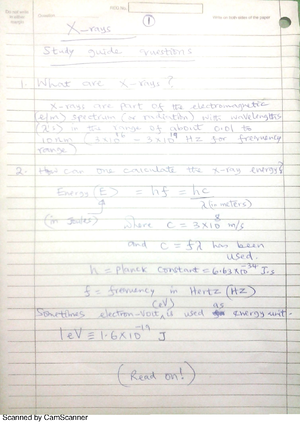 X-rays
①
Study guide questions
1. What are X-rays?
X-rays are part of the electromagnetic
(e/m) spectrum (or radiation) with wavelengths
(λ's) in the range of about 0.01 to
10nm (3x10^16 - 3x10^19 Hz for frequency
range)
2. How can one calculate the x-ray energy?
Energy (E) = hf = hc
λ (in meters)
(in Joules) where c = 3x10^8 m/s
and c = fλ has been
used.
h = planck constant = 6.63x10^-34 J.s
f = frequency in Hertz (Hz)
Sometimes electron-volt (eV) is used as energy unit.
1eV ≡ 1.6x10^-19 J
(Read on!)
Scanned by CamScanner